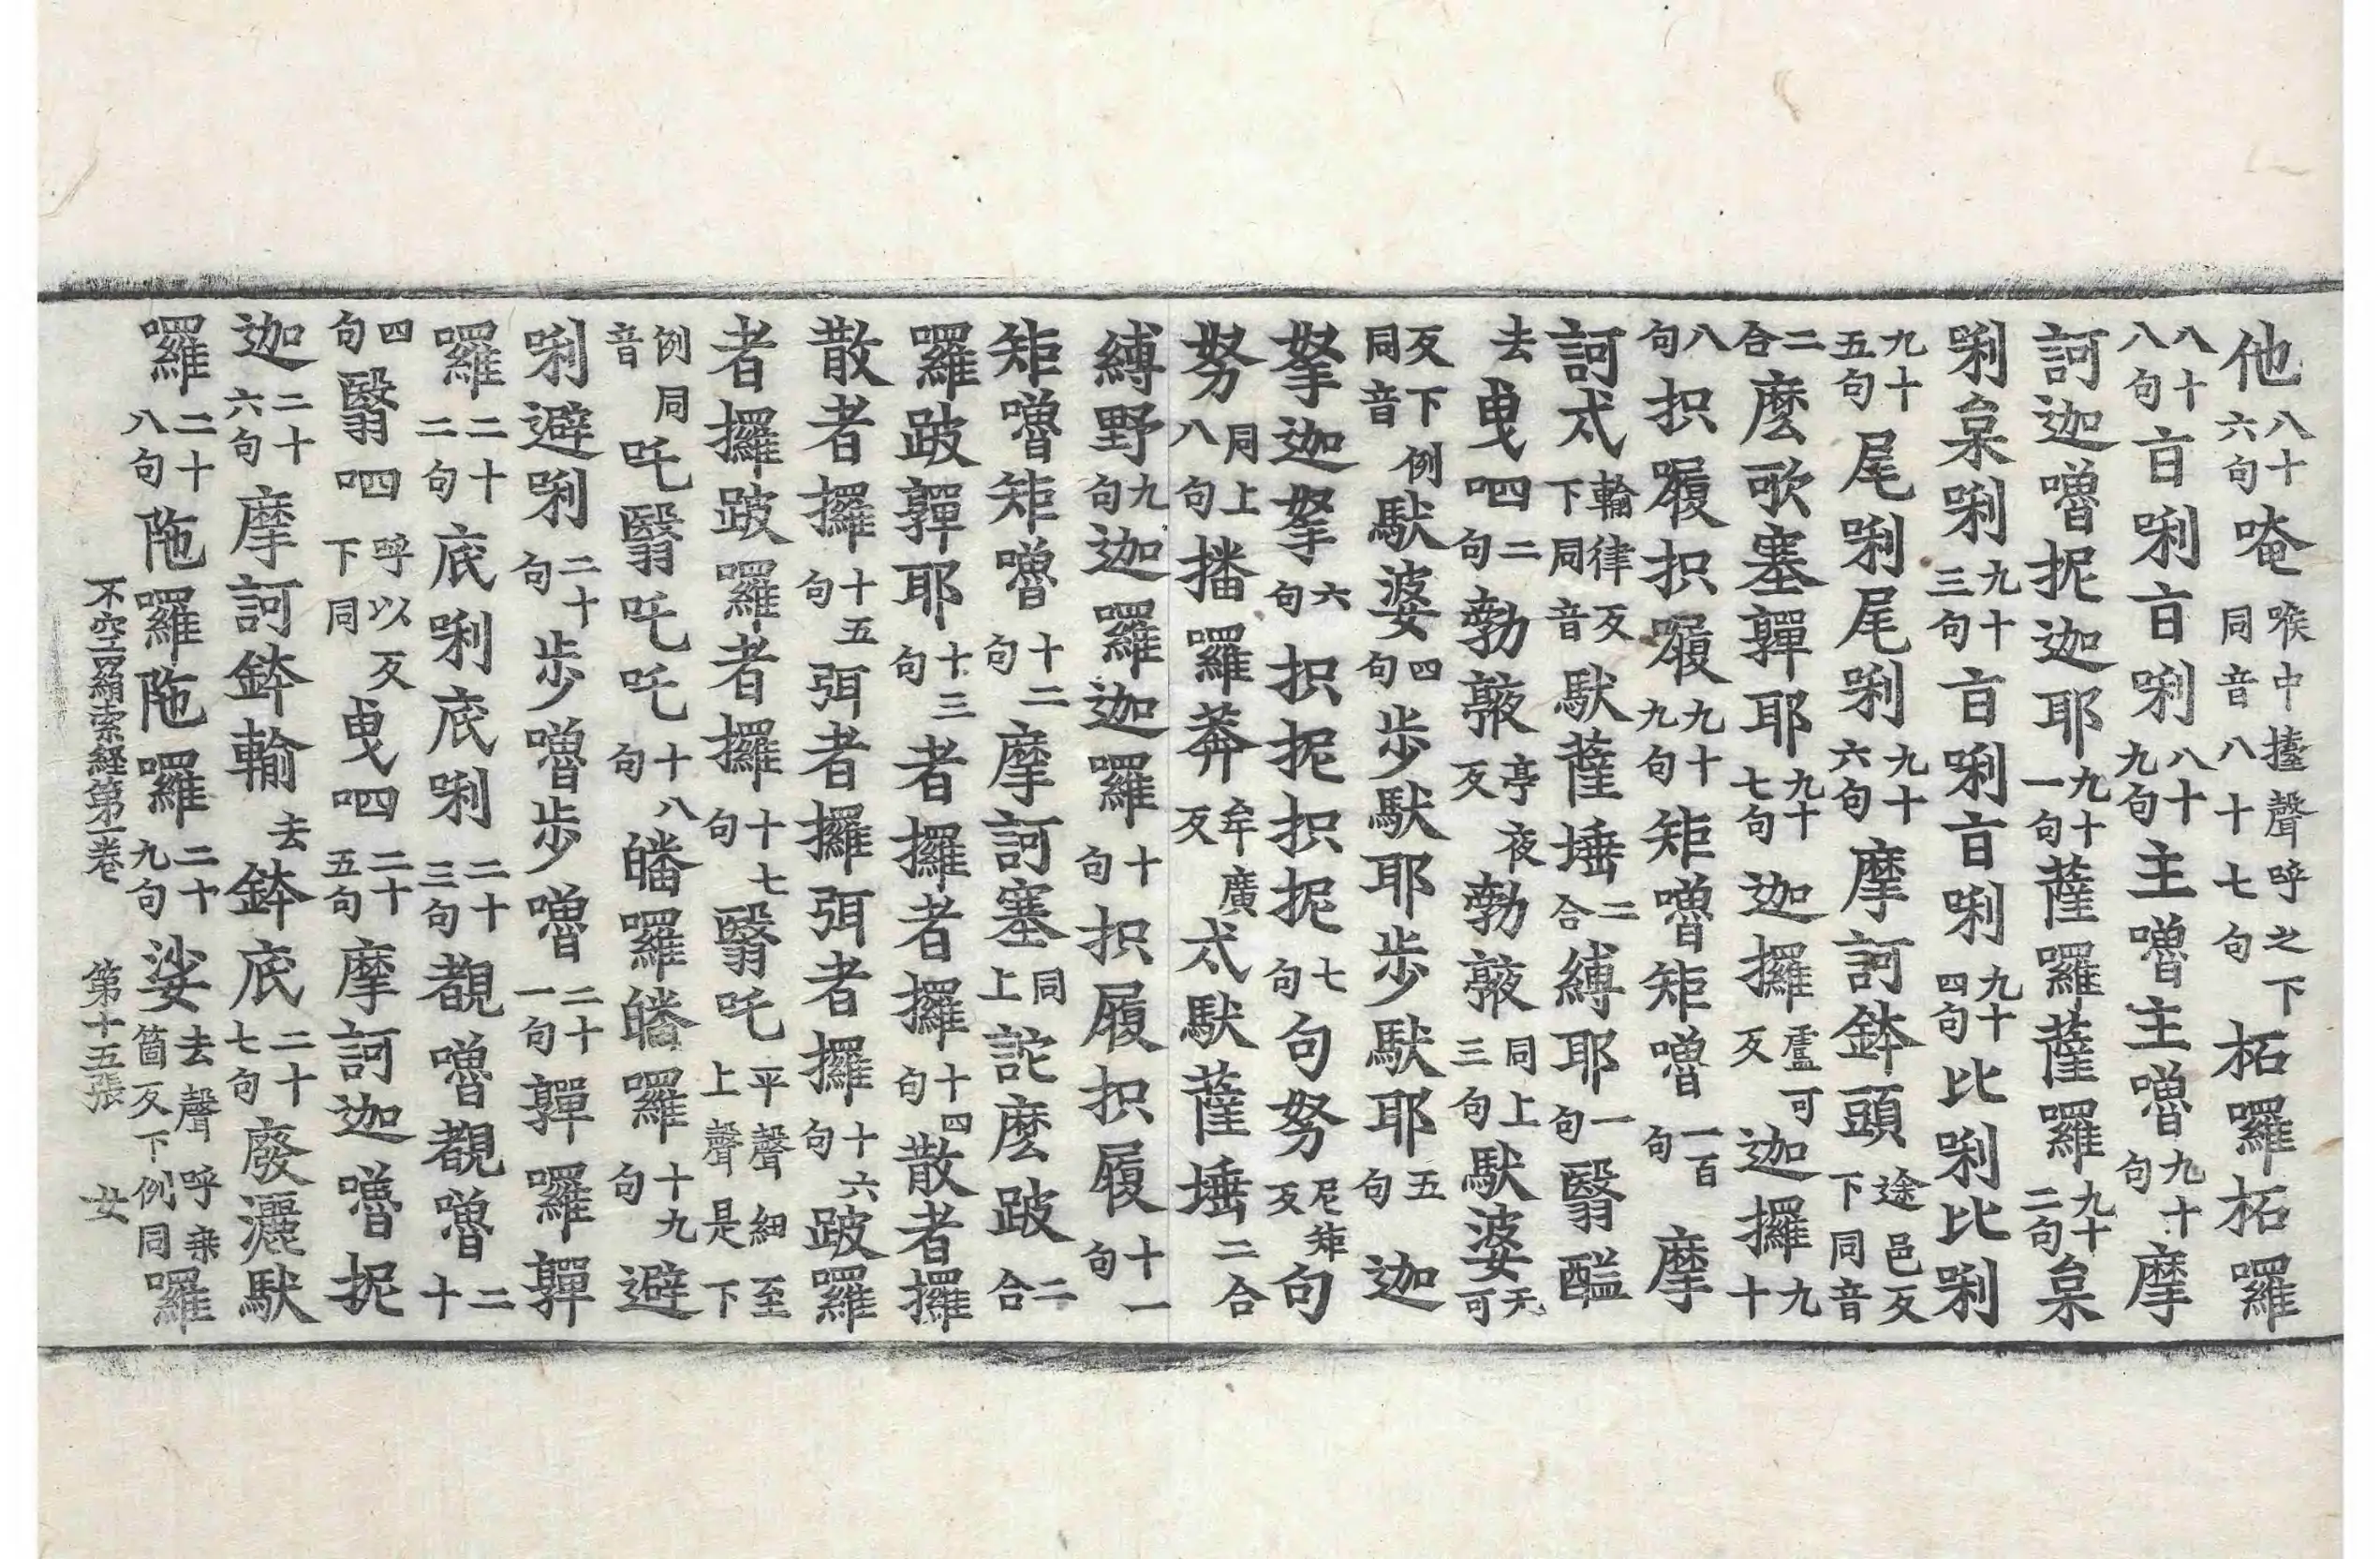 他八十六句唵喉中擡聲呼之下同音八十七句柘囉柘囉
八十八句㫖唎㫖唎八十九句主嚕主嚕九十句摩
訶迦嚕抳迦耶九十一句薩囉薩囉九十二句枲
唎枲唎九十三句㫖唎㫖唎九十四句比唎比唎
九十五句尾唎尾唎九十六句摩訶鉢頭途邑反下同音
二合麽歌塞嚲耶九十七句迦攞盧可反迦攞九十
八句抧履抧履九十九句矩嚕矩嚕一百句摩
訶忒輪律反下同音馱薩埵二合縛耶一句翳醯
去曳呬二句勃䕣亭夜反勃䕣同上三句馱婆无可
反下例同音馱婆四句步馱耶步馱耶五句迦
拏迦拏六句抧抳抧抳七句句努尼矩反句
努同上八句播囉莾牟廣反忒馱薩埵二合
縛野九句迦囉迦囉十句抧履抧履十一句
矩嚕矩嚕十二句摩訶塞同上詫麽跛二合
囉跛嚲耶十三句者攞者攞十四句散者攞
散者攞十五句弭者攞弭者攞十六句跛囉
者攞跛囉者攞十七句翳吒平聲細至上聲是下
例同音吒翳吒吒十八句皤囉皤囉十九句避
唎避唎二十句步嚕步嚕二十一句嚲囉嚲
囉二十二句底唎底唎二十三句覩嚕覩嚕二十
四句翳呬呼以反下同曳呬二十五句摩訶迦嚕抳
迦二十六句摩訶鉢輸去鉢底二十七句廢灑馱
囉二十八句陁囉陁囉二十九句娑去聲呼乗箇反下例同囉
不空罥索経第一卷　第十五張　女